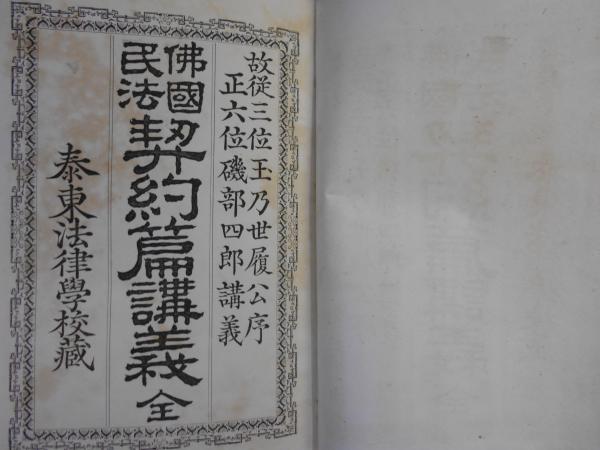 故從三位玉乃世履公序
正六位磯部四郎講義
佛國民法契約篇講義全
泰東法律學校藏